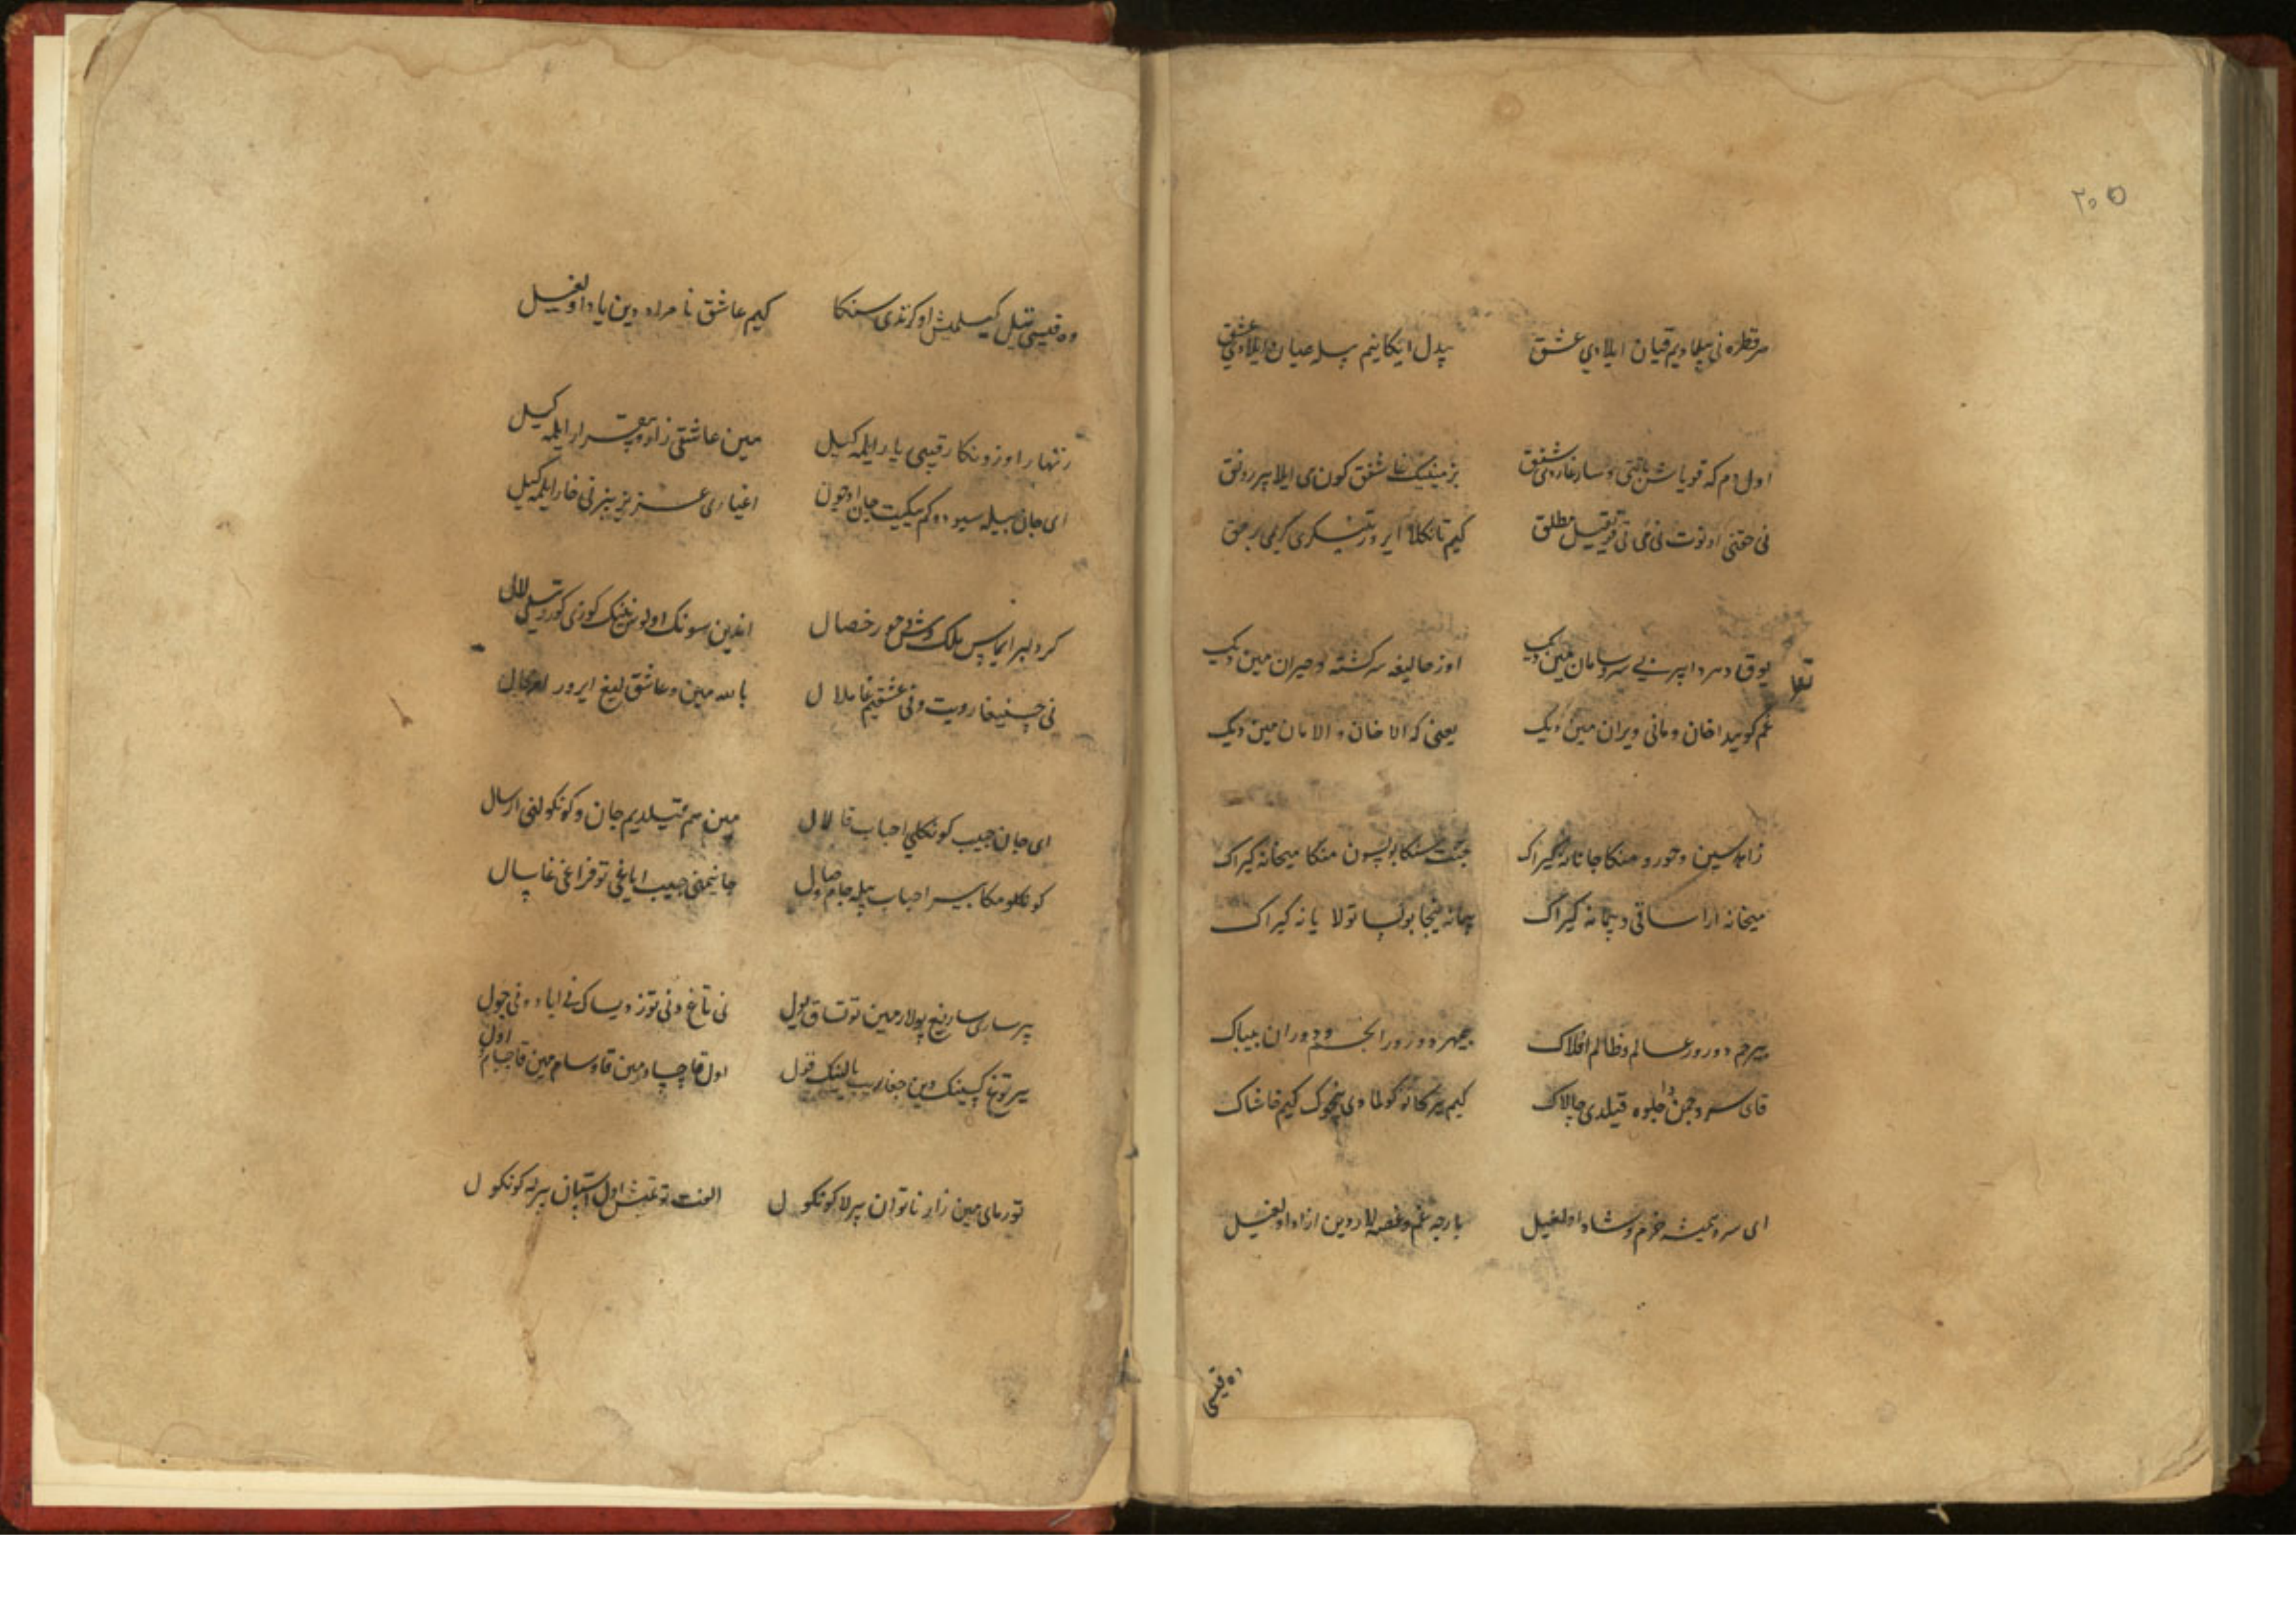 ۲۰۵
هر قطره نی بیلمادیم قیان ایلادی عشق بیدل ایکانیم بیله عیان ایلادی عشق
اول دم که قویاش باتتی و سارغاردی شفق بزمینیک غا شفق کون دی ایلا بیر رونق
نی حقنی اونوت نی می نی قیل مطلق کیم تانکلا ایرور تینکری کریمی برحق
یوق دهر دا بیر بی سر و سامان مین دیک اوز حالیغه سرکشته و حیران مین دیک
غم کوییدا خان و مانی ویران مین دیک یعنی که الا خان و الا مان مین دیک
زاهد سین و حور و منکا جانانه کیراک جنت سنکا بولسون منکا میخانه کیراک
میخانه ارا ساقی و پیمانه کیراک پیمانه نیجا بولسا تولا یانه کیراک
بیرحم دورور عالم و ظالم افلاک بیمهر دورور انجم و دوران بیباک
قای سرو چمن دا جلوه قیلدی چالاک کیم یرکا تو کولمادی خزان کیم خاشاک
ای سرو همیشه خرم و شاد اولغیل بارجه غم و غصه لاردین ازاد اولغیل
وه قیسی
وه قیسی تیل کیلمیش اوکرتدی سنکا کیم عاشق نامراد دین یاد اولغیل
زنهار اوزونکا رقیبی یار ایلمه کیل مین عاشقی زار و بیقرار ایلمه کیل
ای جان بیله سیودوکم یکیت جان اوچون اغیاری عزیز بیزنی خار ایلمه کیل
کر دلبر ایماس ملک وش و حور خصال اندین سونک اولوس نینک کوزی کوردیسه لال
نی چینیغا رویت و نی عشقیم غا ملال بالله مین و عاشق لیغ ایرور امر محال
ای جان حبیب کونکلی احباب قا لال مین هم قیلدیم جان و کونکولنی ارسال
کونکلومکا بیر احباب بیله جام وصال جانیمنی حبیب ایاغی توفراغی غا سال
بیر ساری سارغ بولار مین توتساق یول نی تاغ و نی توز دیساک نی ایا دو نی چول
بیر توغا کیینک دین جغاریب یالنک قول اول قاچسا دمین قاوسام مین قاچسام اول
تورمای مین زار ناتوان بیرلا کونکول الفت توتمیش اول استان بیرله کونکول